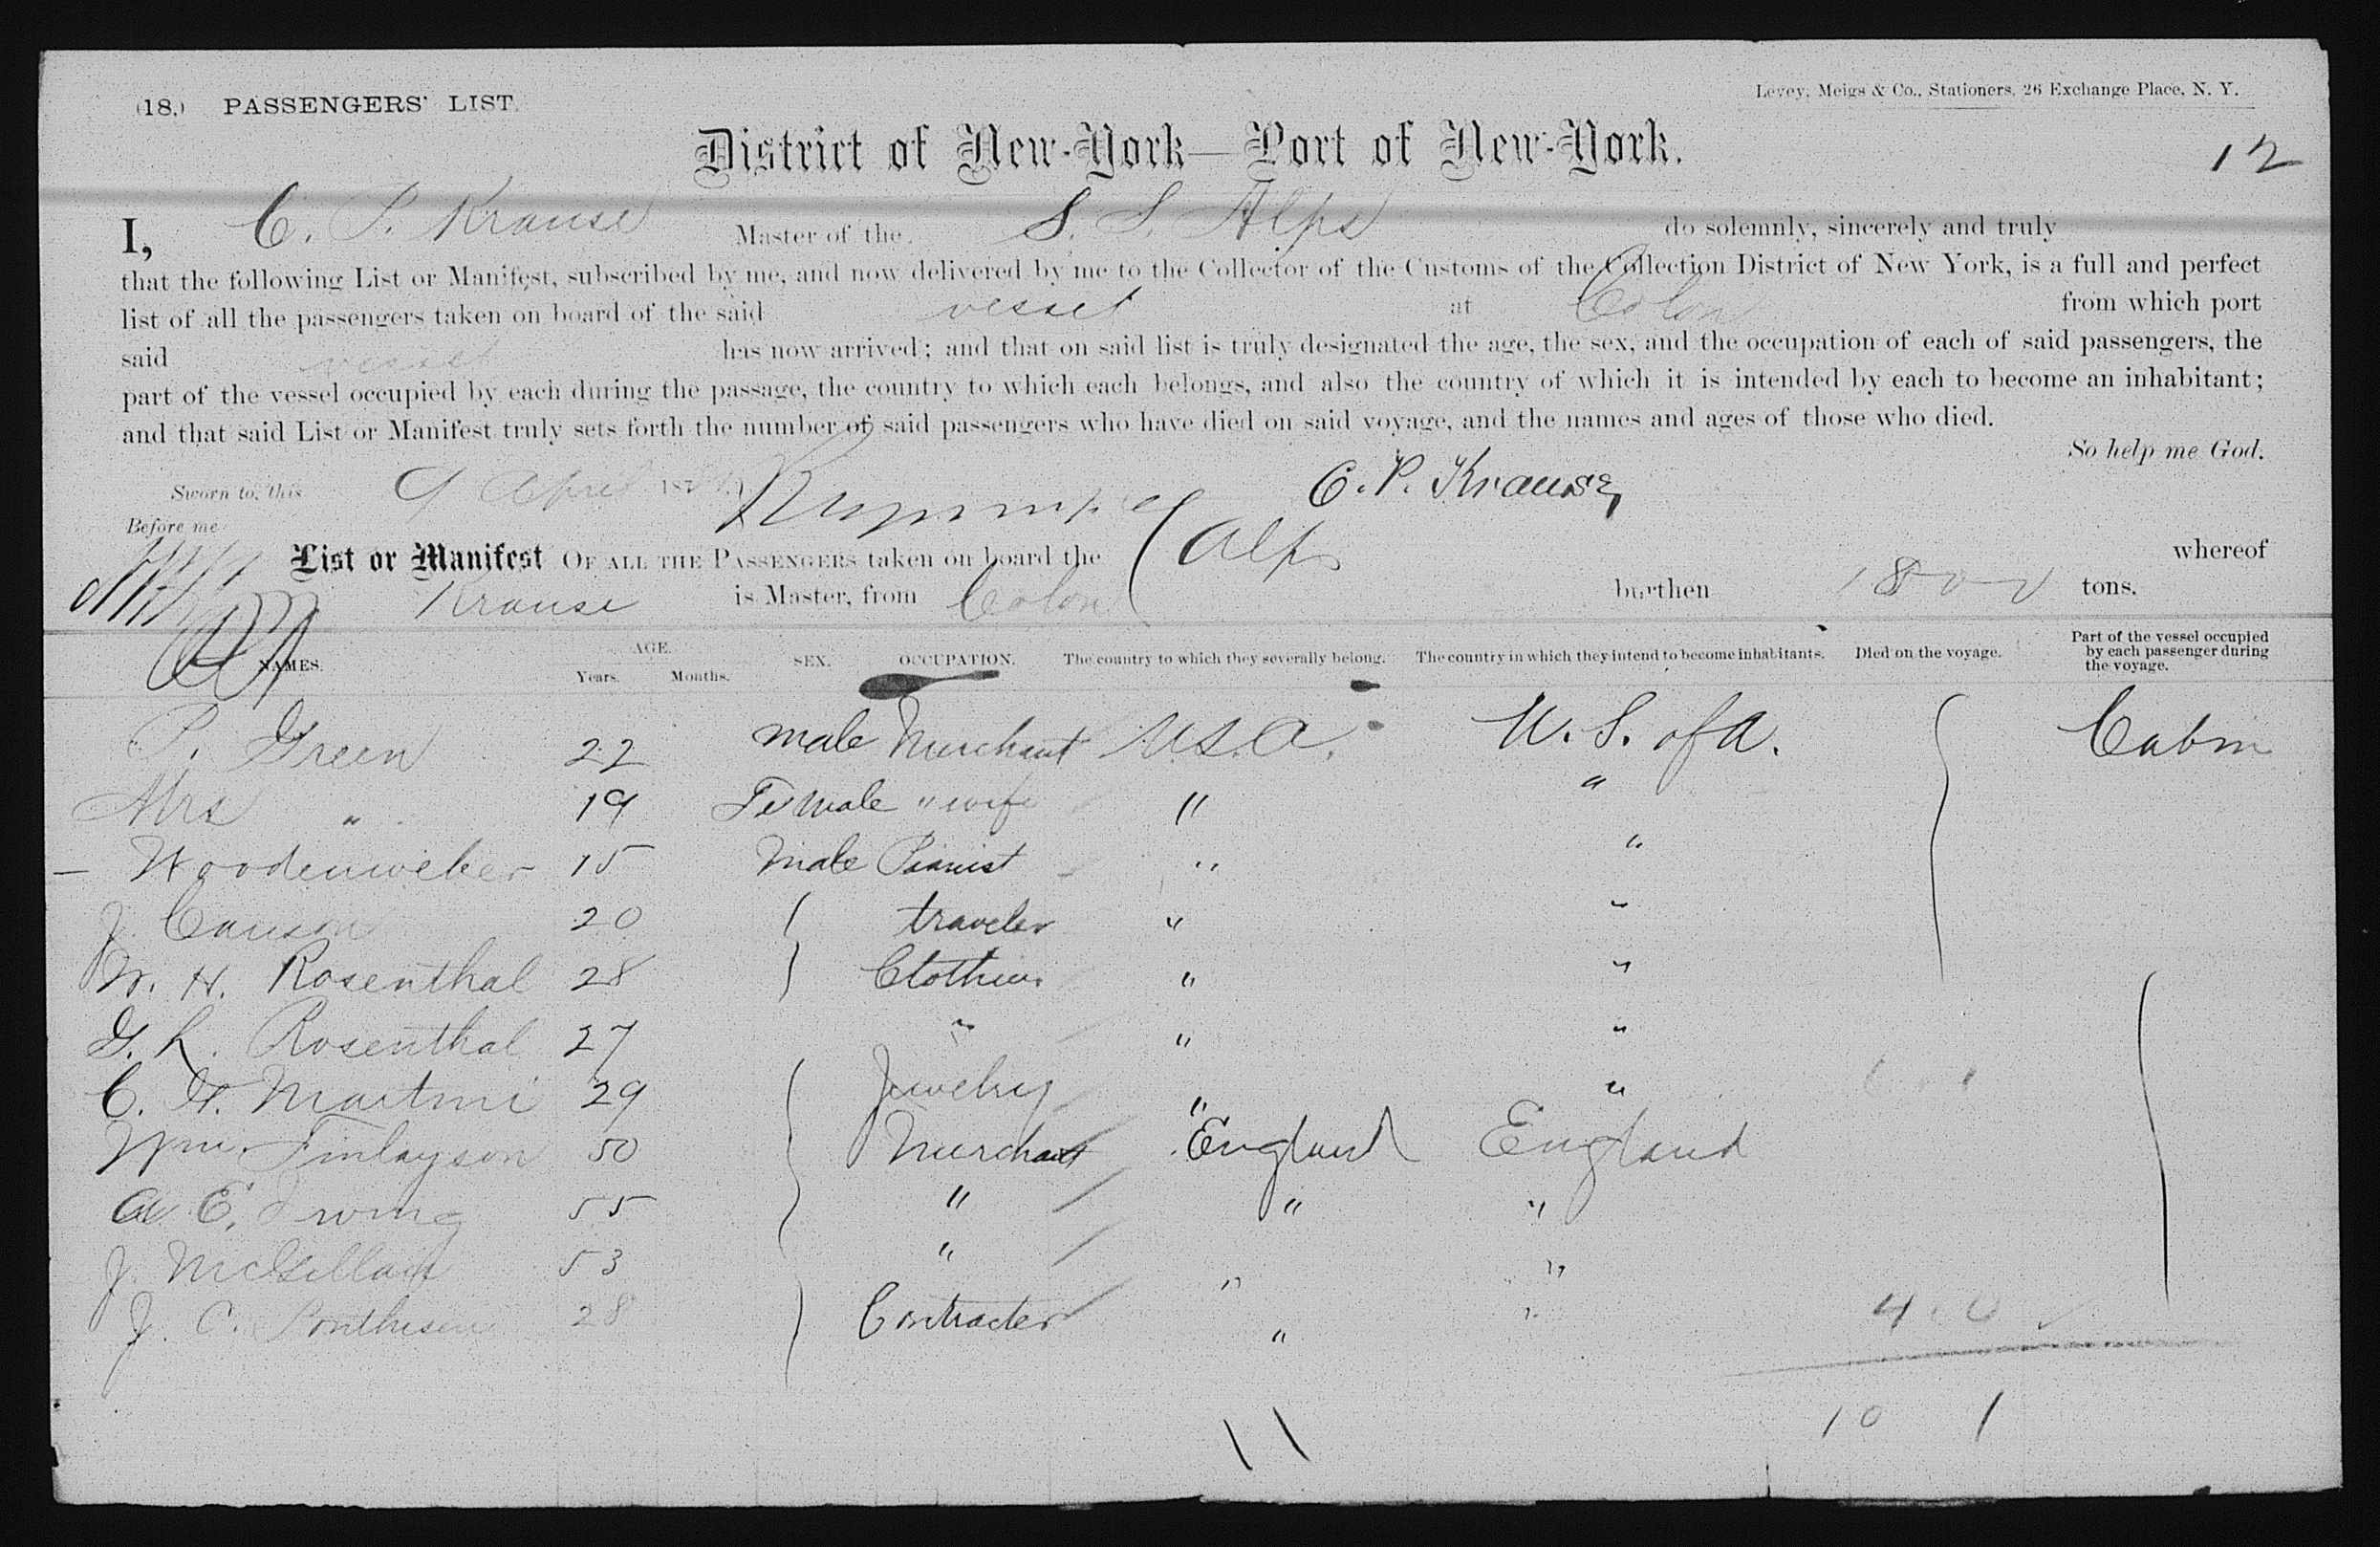 (18.) PASSENGERS' LIST.
Levey, Meigs & Co., Stationers, 26 Exchange Place, N. Y.
District of New-York—Port of New-York.
12
I, C. P. Krause Master of the S. S. Alps do solemnly, sincerely and truly
that the following List or Manifest, subscribed by me, and now delivered by me to the Collector of the Customs of the Collection District of New York, is a full and perfect
list of all the passengers taken on board of the said vessel at Colon from which port
said vessel has now arrived; and that on said list is truly designated the age, the sex, and the occupation of each of said passengers, the
part of the vessel occupied by each during the passage, the country to which each belongs, and also the country of which it is intended by each to become an inhabitant;
and that said List or Manifest truly sets forth the number of said passengers who have died on said voyage, and the names and ages of those who died.
So help me God.
Sworn to, this 9 April 18
C. P. Krause
Before me
List or Manifest OF ALL THE PASSENGERS taken on board the Alps whereof
Krause is Master, from Colon burthen 1800 tons.
NAMES. AGE. Years. Months. SEX. OCCUPATION. The country to which they severally belong. The country in which they intend to become inhabitants. Died on the voyage. Part of the vessel occupied by each passenger during the voyage.
P. Green 22 male Merchant U.S.A. U. S. of A. Cabin
Mrs " 19 Female " wife " "
— Woodenweber 15 Male Pianist " "
J. 20 traveler " "
W. H. Rosenthal 28 Clothier " "
G. L. Rosenthal 27 " " "
C. H. Martini 29 Jewelry " "
Wm. Finlayson 50 Merchant England England
A E. Irving 55 " " "
J. McLellan 53 " " "
J. C. 28 Contracter " "
4.0
11
10 1